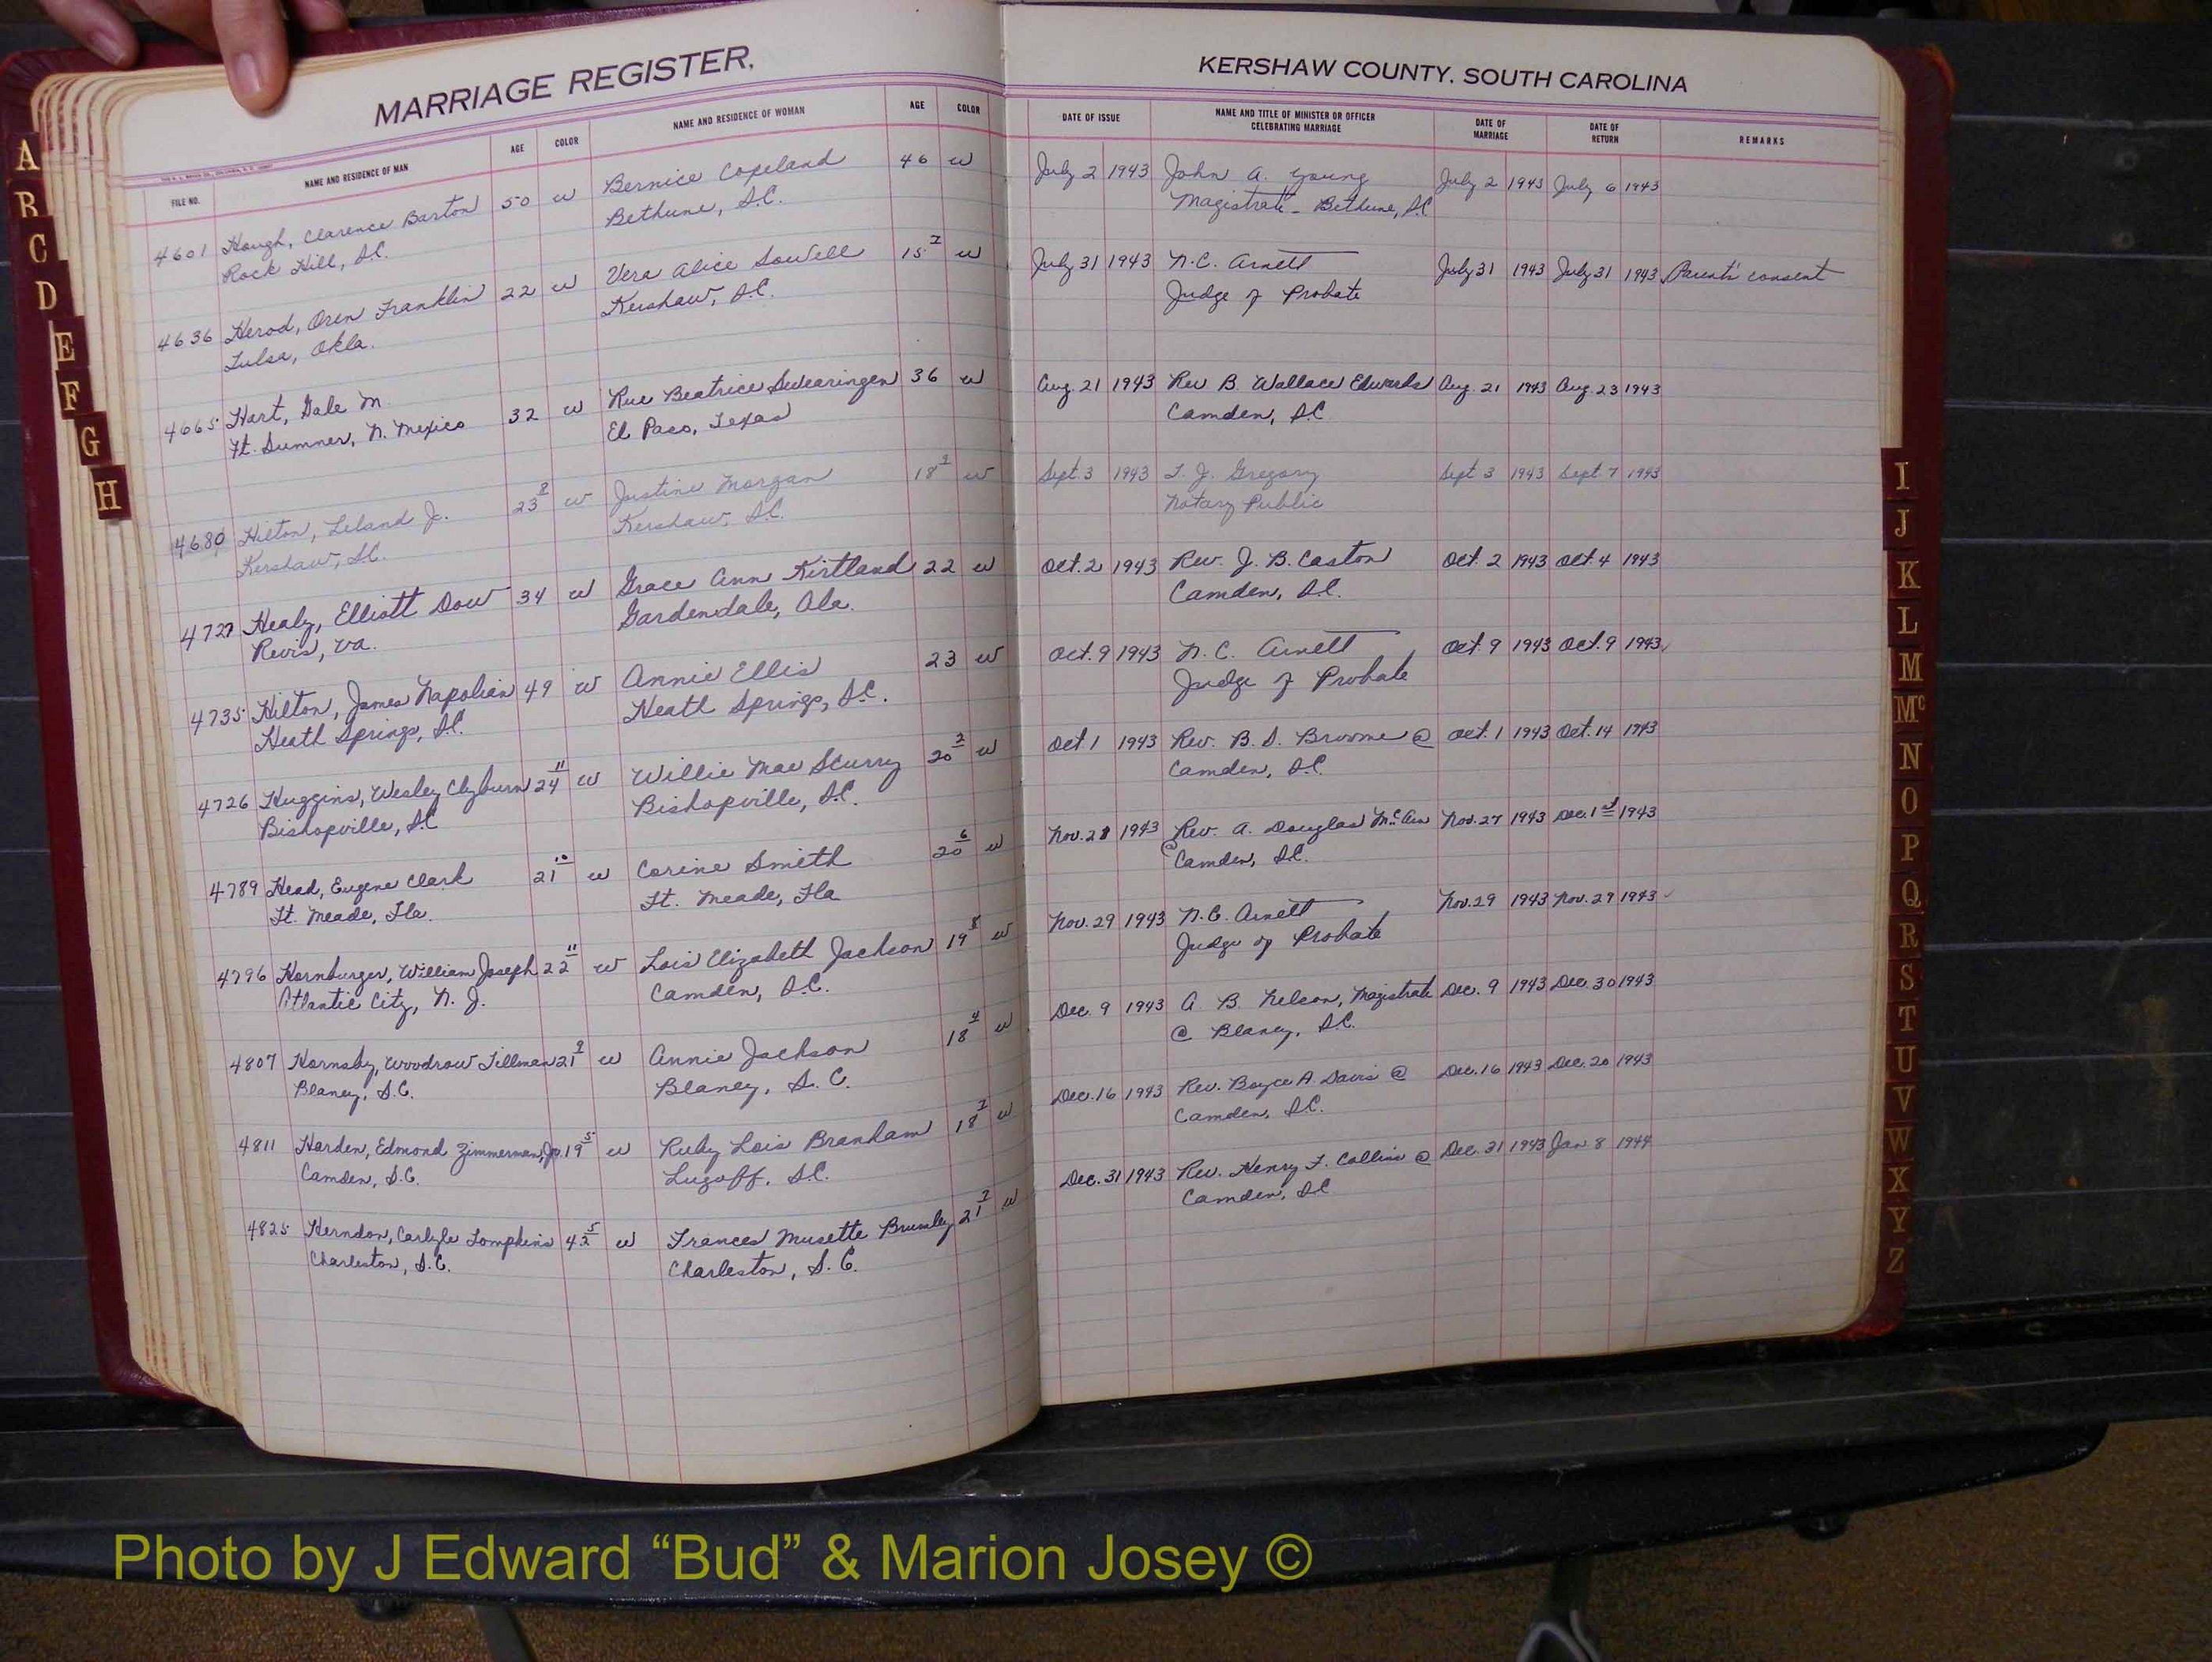 MARRIAGE REGISTER,
FILE NO. NAME AND RESIDENCE OF MAN AGE COLOR NAME AND RESIDENCE OF WOMAN AGE COLOR
4601 Hough, Clarence Barton 50 w Bernice Copeland 46 w
Rock Hill, S.C. Bethune, S.C.
4636 Herod, Oren Franklin 22 w Vera Alice Sowell 15 w
Tulsa, Okla. Kershaw, S.C.
4665 Hart, Dale M. 32 w Rue Beatrice Swearingen 36 w
Ft. Sumner, N. Mexico El Paso, Texas
4680 Hilton, Leland J. 23 w Justine Morgan 18 w
Kershaw, S.C. Kershaw, S.C.
4727 Healy, Elliott Dow 34 w Grace Ann Kirtland 22 w
Va. Gardendale, Ala.
4735 Hilton, James Napolian 49 w Annie Ellis 23 w
Heath Springs, S.C. Heath Springs, S.C.
4726 Huggins, Wesley Clyburn 24 11 w Willie Mae Scurry 20 w
Bishopville, S.C. Bishopville, S.C.
4789 Head, Eugene Clark 21 10 w Corine Smith 20 6 w
Ft. Meade, Fla. Ft. Meade, Fla
4796 Hornburger, William Joseph 22 11 w Lois Elizabeth Jackson 19 8 w
Atlantic City, N. J. Camden, S.C.
4807 Hornsby, Woodrow Tillman 21 w Annie Jackson 18 4 w
Blaney, S.C. Blaney, S. C.
4811 Harden, Edmond Zimmerman, Jr. 19 5 w Ruby Lois Branham 18 w
Camden, S.C. Lugoff, S.C.
4825 Herndon, Carlyle Tompkins 42 5 w Frances Musette 21 w
Charleston, S.C. Charleston, S. C.
KERSHAW COUNTY, SOUTH CAROLINA
DATE OF ISSUE NAME AND TITLE OF MINISTER OR OFFICER CELEBRATING MARRIAGE DATE OF MARRIAGE DATE OF RETURN REMARKS
July 2 1943 John A. Young July 2 1943 July 6 1943
Magistrate - Bethune, S.C.
July 31 1943 N.C. Arnett July 31 1943 July 31 1943 Parents' consent
Judge of Probate
Aug. 21 1943 Rev B. Wallace Edwards Aug. 21 1943 Aug. 23 1943
Camden, S.C.
Sept. 3 1943 T. J. Gregory Sept 3 1943 Sept. 7 1943
Notary Public
Oct. 2 1943 Rev. J. B. Caston Oct. 2 1943 Oct. 4 1943
Camden, S.C.
Oct. 9 1943 N. C. Arnett Oct. 9 1943 Oct. 9 1943
Judge of Probate
Oct. 1 1943 Rev. B. S. Broome @ Oct. 1 1943 Oct. 14 1943
Camden, S.C.
Nov. 1943 Rev. A. Douglas Nov. 27 1943 Dec. 1st 1943
Camden, S.C.
Nov. 29 1943 N.C. Arnett Nov. 29 1943 Nov. 29 1943
Judge of Probate
Dec. 9 1943 A. B. Nelson, Magistrate Dec. 9 1943 Dec. 30 1943
@ Blaney, S.C.
Dec. 16 1943 Rev. Boyce A. Davis @ Dec. 16 1943 Dec. 20 1943
Camden, S.C.
Dec. 31 1943 Rev. Henry F. Collins @ Dec. 31 1943 Jan 8 1944
Camden, S.C.
A
B
C
D
E
F
G
H
I
J
K
L
M
Mc
N
O
P
Q
R
S
T
U
V
W
X
Y
Z
Photo by J Edward “Bud” & Marion Josey ©